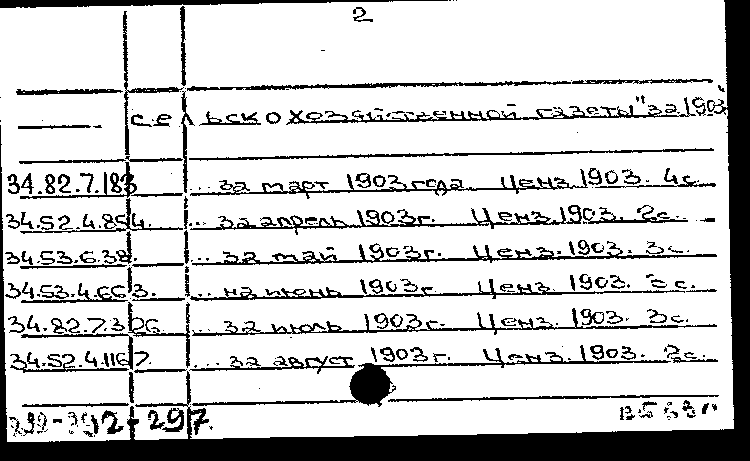 2
сельскохозяйственной газеты" за 1903
34.82.7.183 ... за март 1903 года. Ценз. 1903. 4с.
34.52.4.854. ... за апрель 1903г. Ценз. 1903. 2с.
34.53.6.38. ... за май 1903г. Ценз. 1903. 3с.
34.53.4.663. ... на июнь 1903г. Ценз. 1903. с.
34.82.7.326 ... за июль 1903г. Ценз. 1903. 3с.
34.52.4.1167. ... за август 1903г. Ценз. 1903. 2с.
292-297.